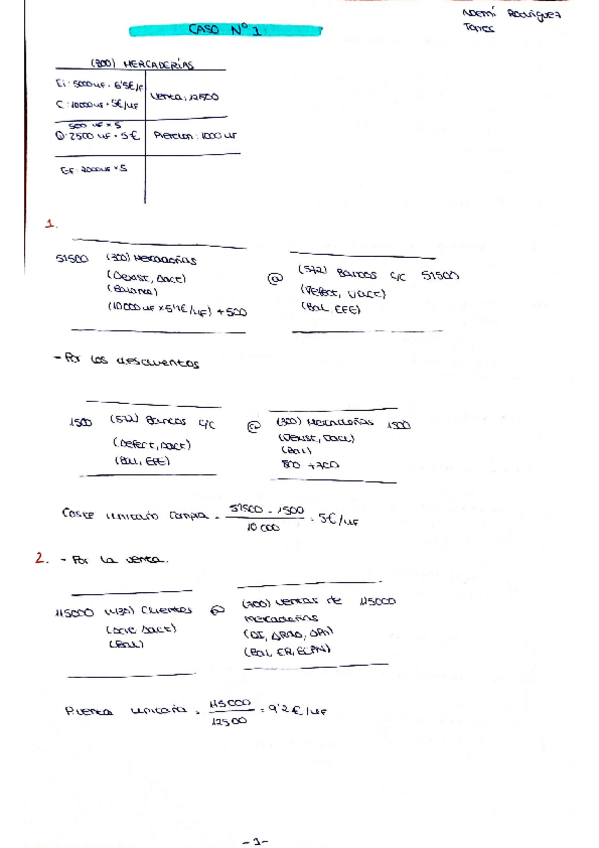 CASO Nº 1
Noemí Rodríguez
Torres
(300) MERCADERÍAS
Ei: 5000 uf · 6'5€/uf
C: 10000 uf · 5€/uf
Venta: 12500
500 uf x 5
2500 uf · 5€
1000 uf
Ef: 2000 uf x 5
1.
51500 (300) Mercaderías
(Dexist, Δact)
(Balance)
(10000 uf x 5'1€/uf) + 500
@
(572) Bancos c/c 51500
(Defect, ∇act)
(Bal, EFE)
- Por los descuentos
1500 (572) Bancos c/c
(Defect, Δact)
(Bal, EFE)
@
(300) Mercaderías 1500
(Bal)
800 + 700
Coste unitario compra = 51500 - 1500 / 10 000 = 5€/uf
2. - Por la venta.
115000 (430) Clientes @
(Bal)
(700) Ventas de 115000
mercaderías
(DI, ΔRdo, ΔPN)
(Bal, ER, ECPN)
Pventa unitaria = 115000 / 12500 = 9'2€/uf
- 1 -